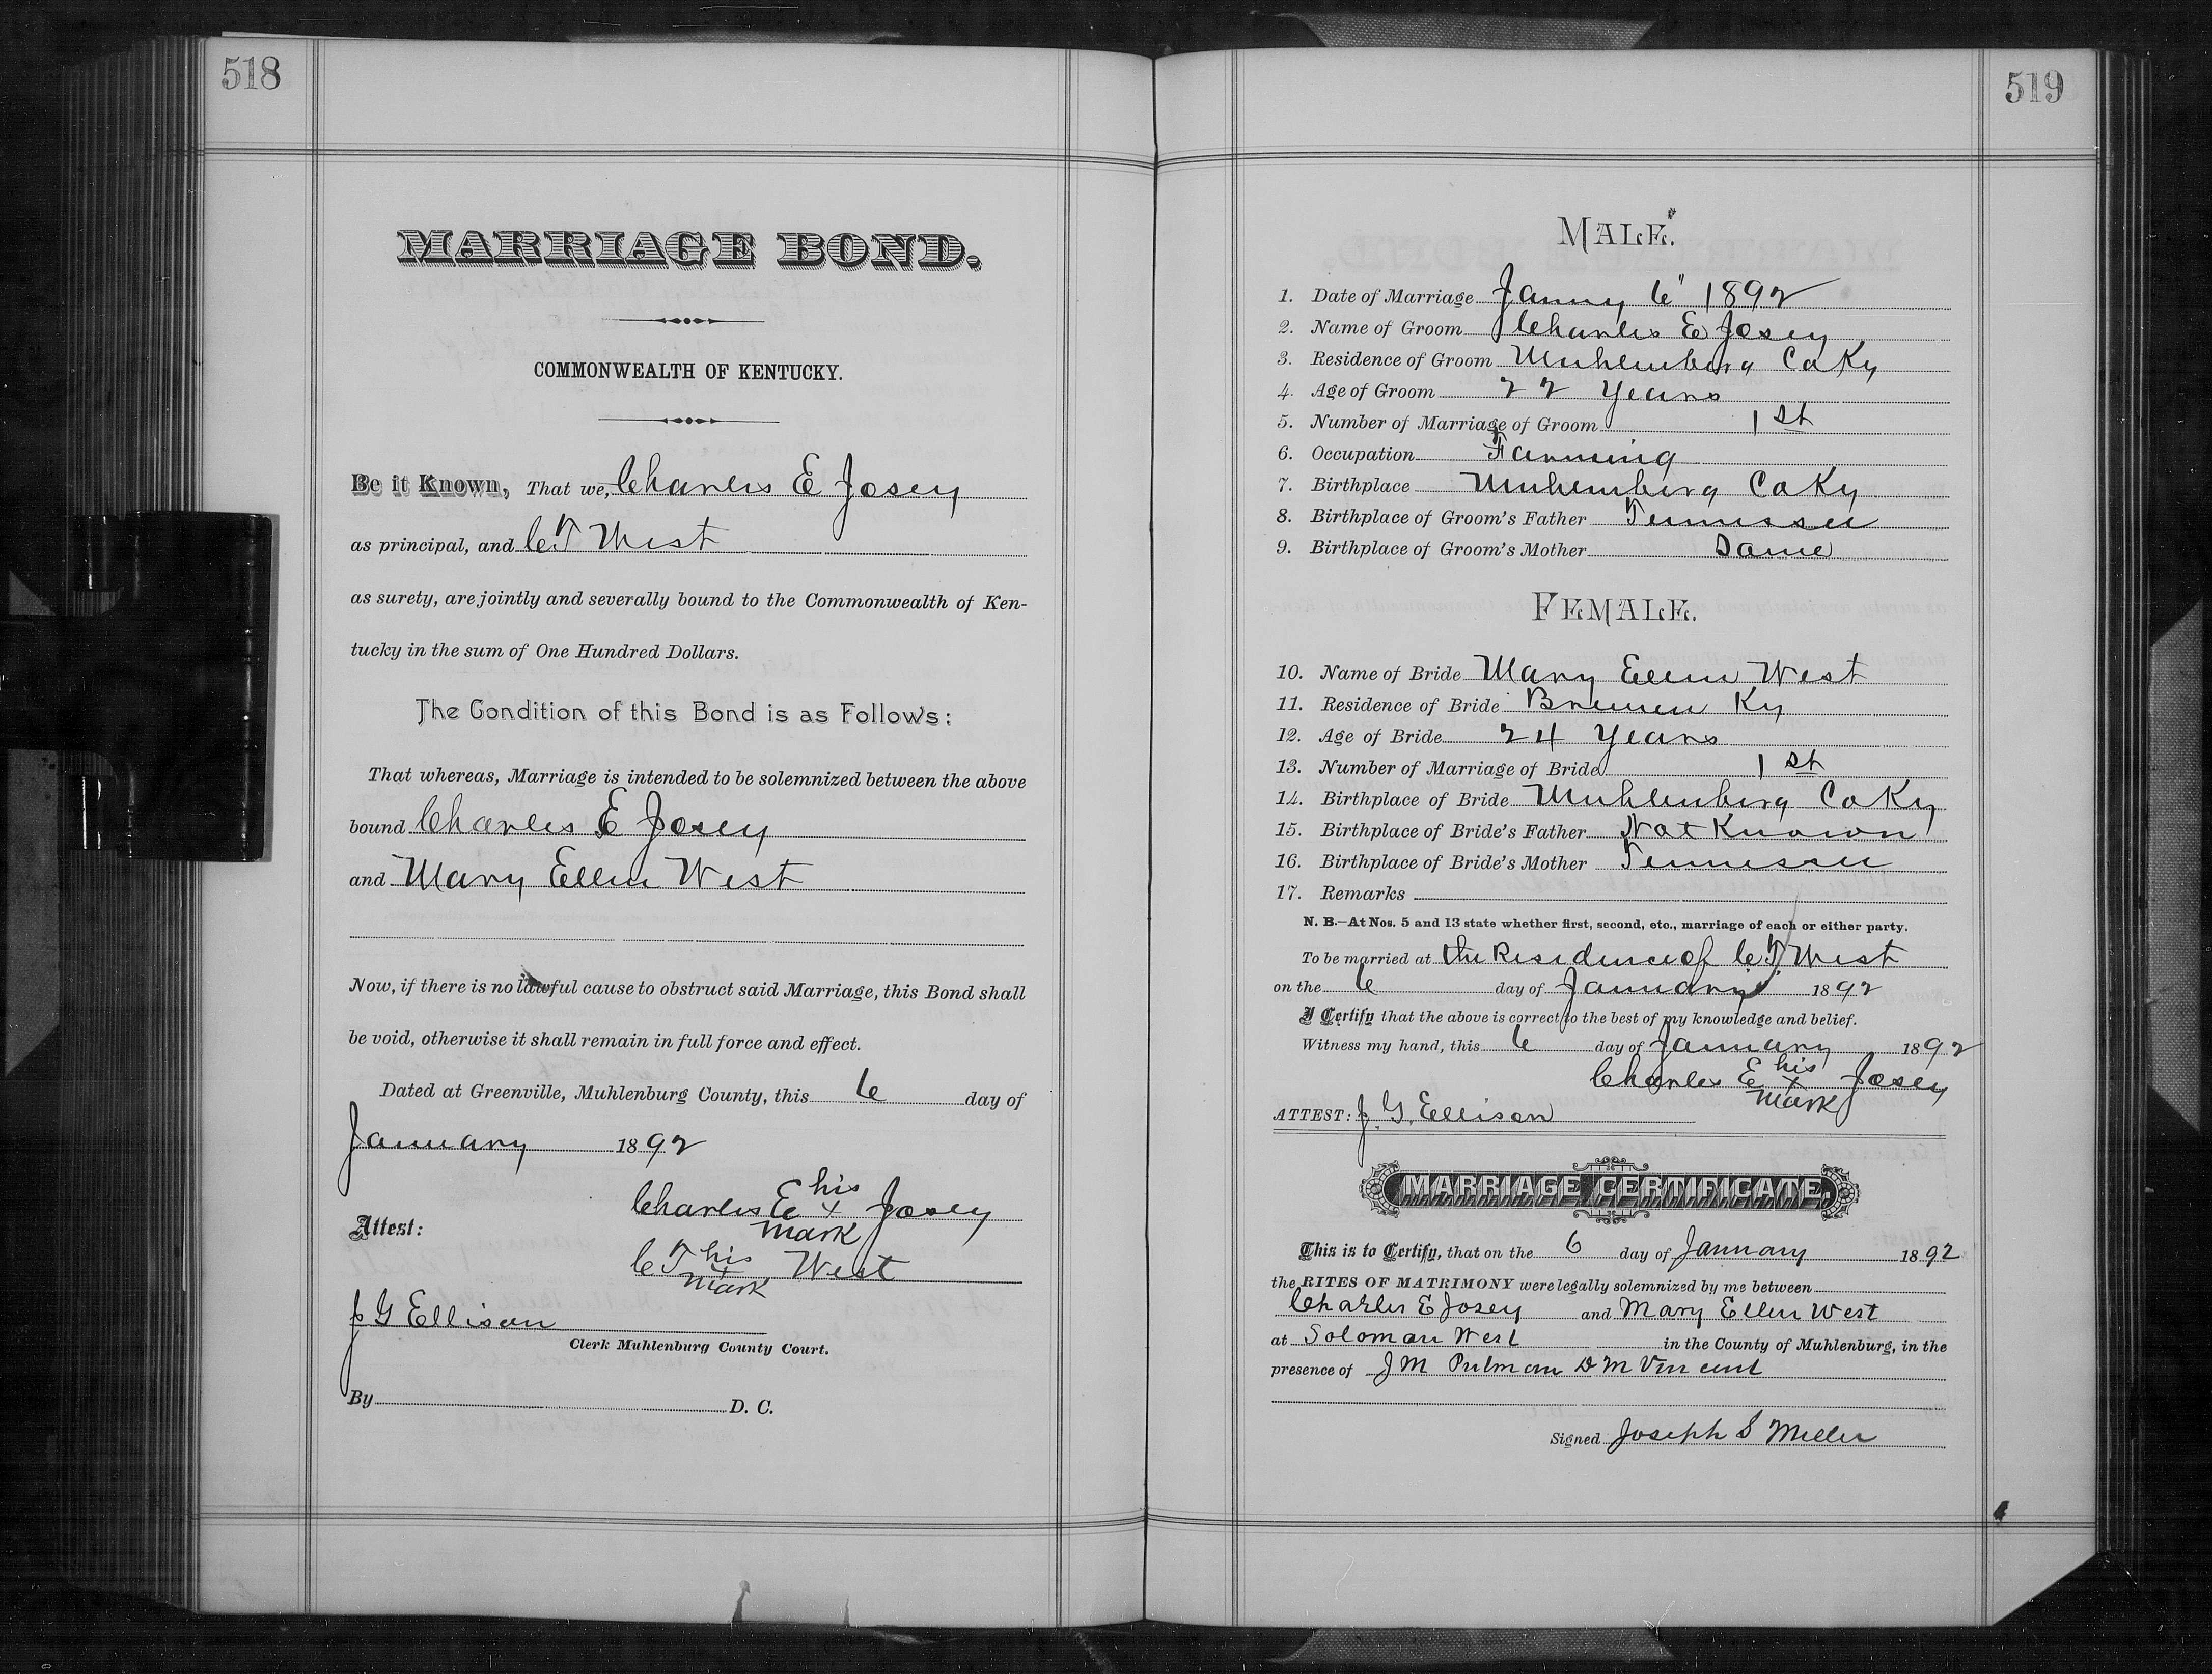 518
MARRIAGE BOND.
COMMONWEALTH OF KENTUCKY.
Be it Known, That we, Charles E Josey
as principal, and C T West
as surety, are jointly and severally bound to the Commonwealth of Ken-
tucky in the sum of One Hundred Dollars.
The Condition of this Bond is as Follows:
That whereas, Marriage is intended to be solemnized between the above
bound Charles E Josey
and Mary Ellen West
Now, if there is no lawful cause to obstruct said Marriage, this Bond shall
be void, otherwise it shall remain in full force and effect.
Dated at Greenville, Muhlenburg County, this 6 day of
January 1892
Charles E his x mark Josey
Attest:
C T his x mark West
J G Ellison
Clerk Muhlenburg County Court.
By D. C.
519
MALE.
1. Date of Marriage Janury 6" 1892
2. Name of Groom Charles E Josey
3. Residence of Groom Muhlenberg Co Ky
4. Age of Groom 22 Years
5. Number of Marriage of Groom 1st
6. Occupation Farming
7. Birthplace Muhlenberg Co Ky
8. Birthplace of Groom's Father Tennessee
9. Birthplace of Groom's Mother Same
FEMALE.
10. Name of Bride Mary Ellen West
11. Residence of Bride Bremen Ky
12. Age of Bride 24 Years
13. Number of Marriage of Bride 1st
14. Birthplace of Bride Muhlenberg Co Ky
15. Birthplace of Bride's Father Not Known
16. Birthplace of Bride's Mother Tennessee
17. Remarks
N. B.—At Nos. 5 and 13 state whether first, second, etc., marriage of each or either party.
To be married at the Residence of C. T. West
on the 6 day of January 1892
I Certify that the above is correct to the best of my knowledge and belief.
Witness my hand, this 6 day of January 1892
Charles E his x mark Josey
ATTEST: J. G. Ellison
MARRIAGE CERTIFICATE.
This is to Certify, that on the 6 day of January 1892
the RITES OF MATRIMONY were legally solemnized by me between
Charles E Josey and Mary Ellen West
at Soloman West in the County of Muhlenburg, in the
presence of J M Putman D M Vincent
Signed Joseph S Miller